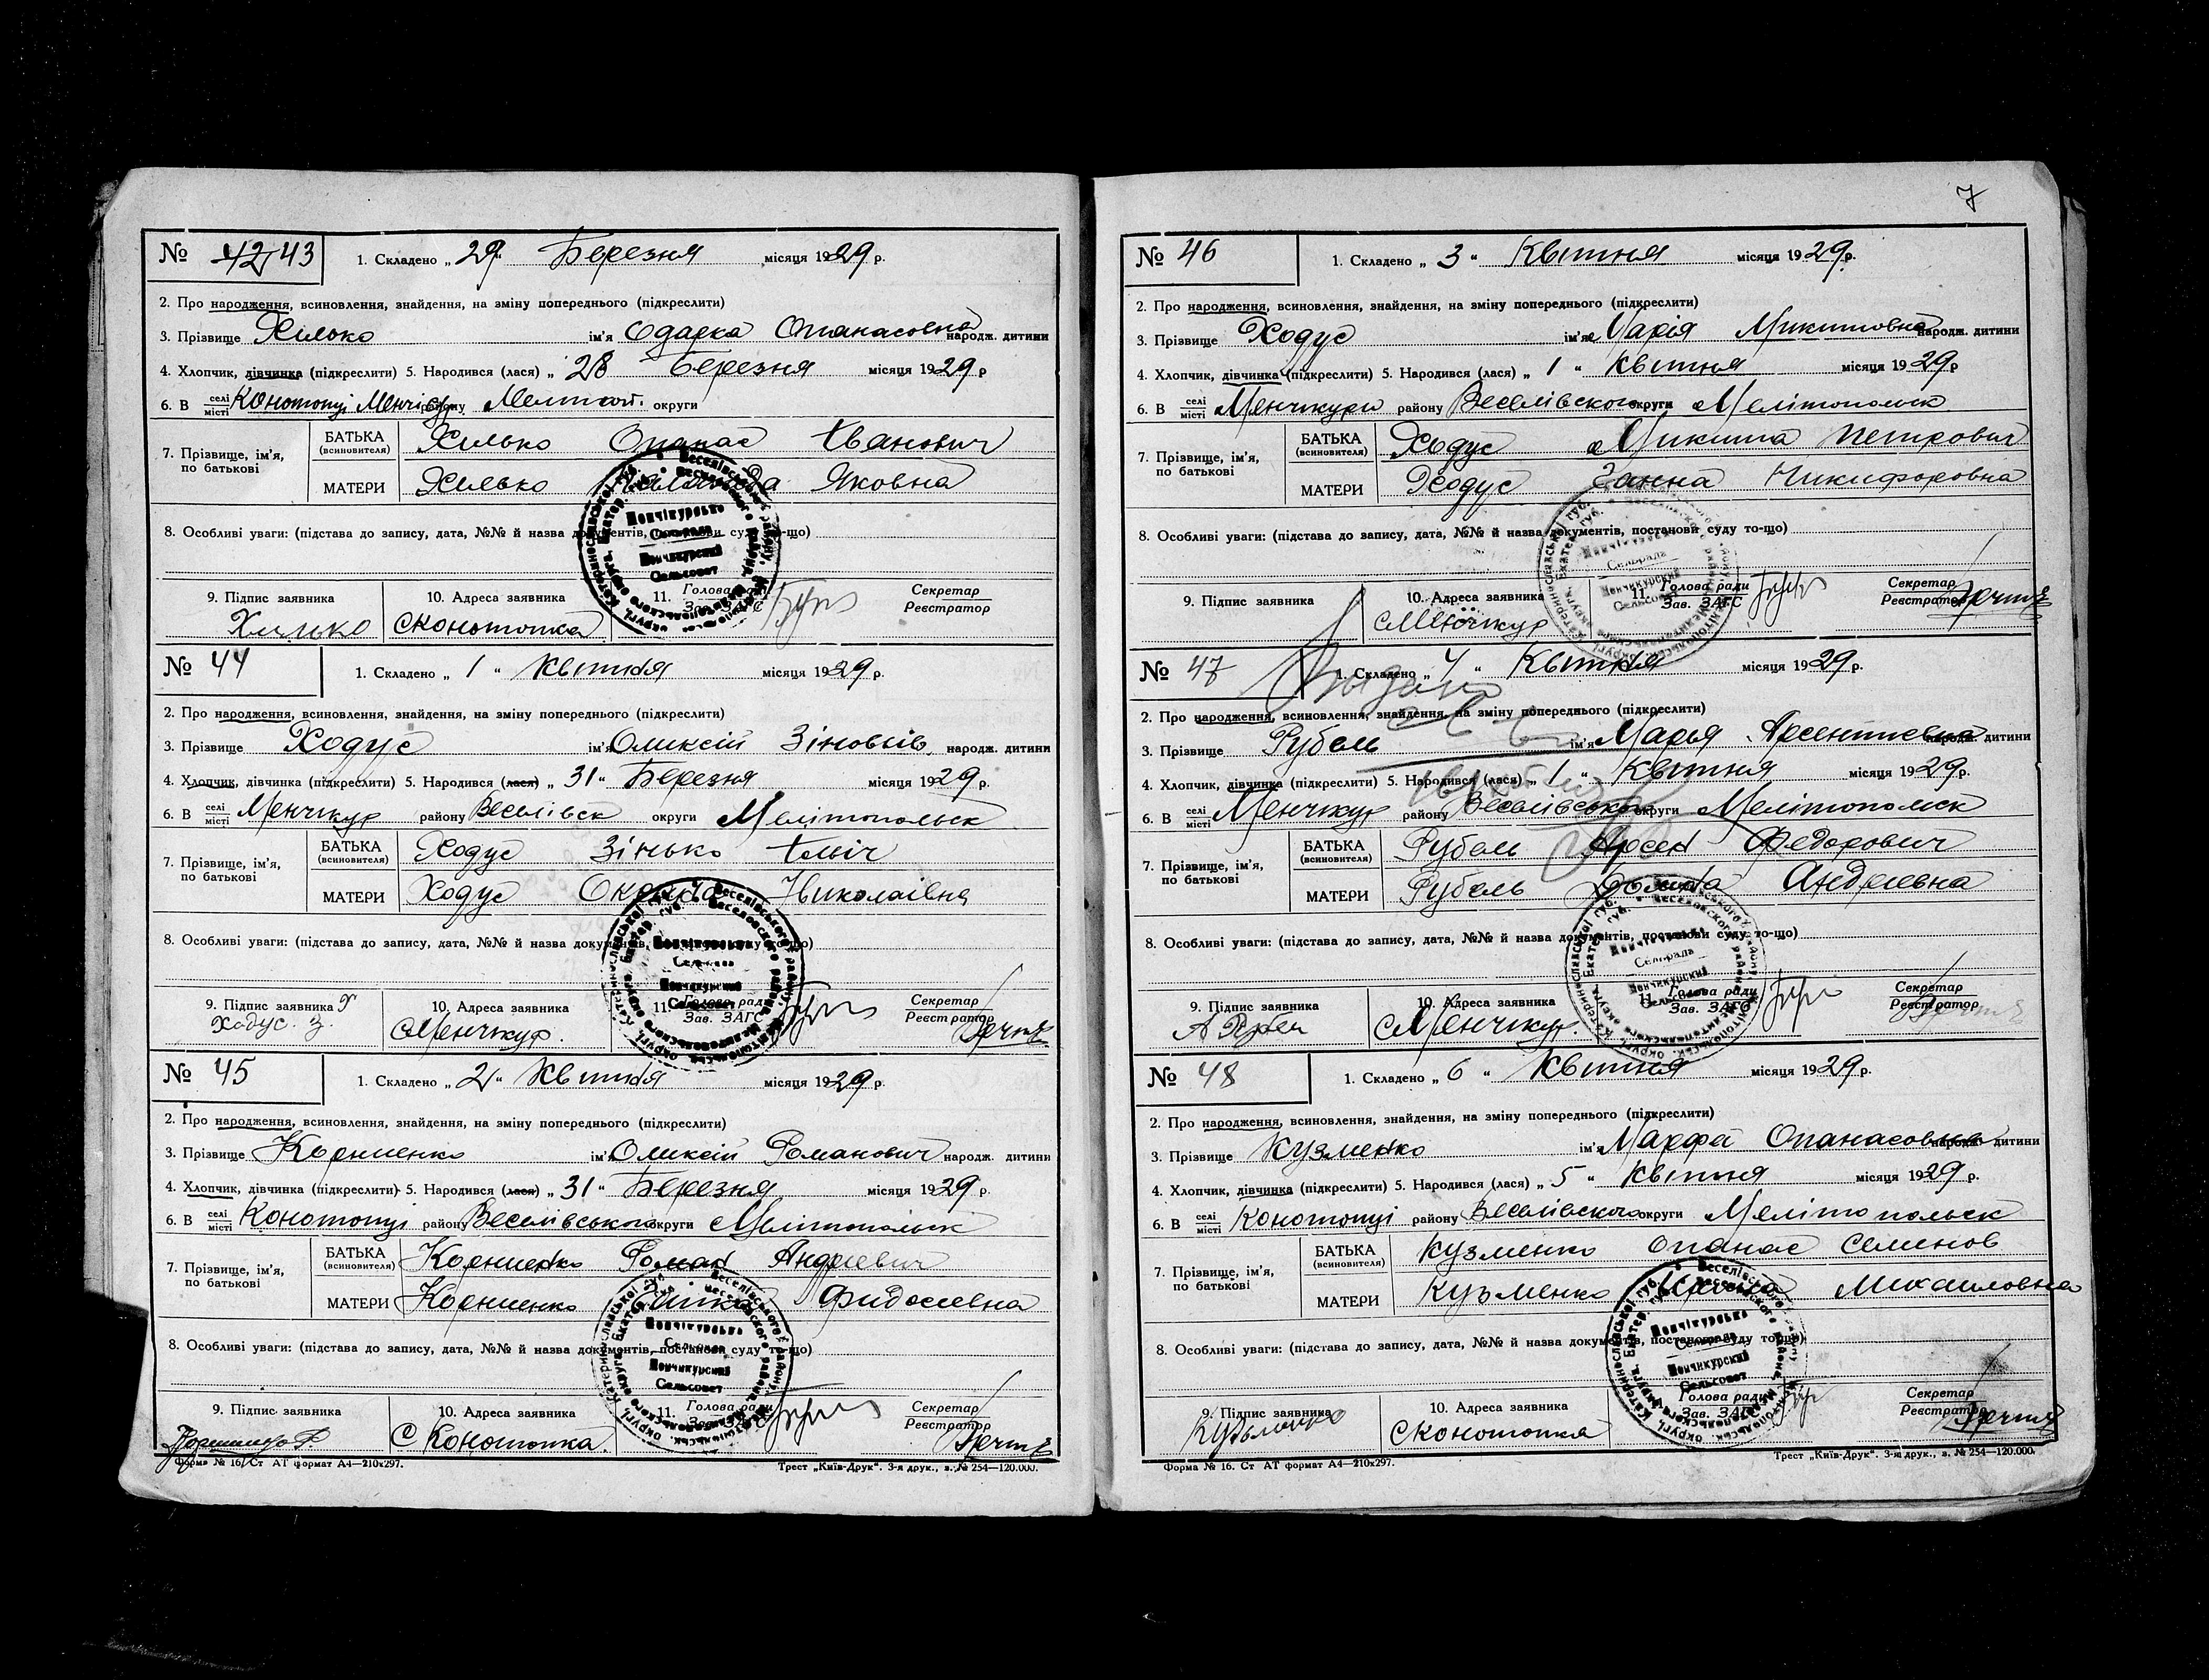 № 42 43 1. Складено „ 29 “ Березня місяця 1929 р.
2. Про народження, всиновлення, знайдення, на зміну попереднього (підкреслити)
3. Прізвище Хилько ім'я Одарка Опанасовна народж. дитини
4. Хлопчик, дівчинка (підкреслити) 5. Народився (лася) „ 28 Березня місяця 1929 р
6. В селі місті Конотопці Менчікур району Мелитоп. округи
7. Прізвище, ім'я, по батькові БАТЬКА (всиновителя) Хилько Опанас Іванович
МАТЕРИ Хилько Яковна
8. Особливі уваги: (підстава до запису, дата, №№ й назва документів, постанови суду то-що)
9. Підпис заявника 10. Адреса заявника 11. Голова ради Зав. ЗАГС Секретар Реєстратор
Хилько с Конотопка
№ 44 1. Складено „ 1 “ Квітня місяця 1929 р.
2. Про народження, всиновлення, знайдення, на зміну попереднього (підкреслити)
3. Прізвище Ходус ім'я Оликсій Зіновьів. народж. дитини
4. Хлопчик, дівчинка (підкреслити) 5. Народився (лася) „ 31 “ Березня місяця 1929 р.
6. В селі місті Менчикур району Веселівск округи Мелітопольск
7. Прізвище, ім'я, по батькові БАТЬКА (всиновителя) Ходус Зінько Ільіч
МАТЕРИ Ходус Николаівна
8. Особливі уваги: (підстава до запису, дата, №№ й назва документів, постанови суду то-що)
9. Підпис заявника 10. Адреса заявника 11. Голова ради Зав. ЗАГС Секретар Реєстратор
Ходус. З. с Менчикур.
№ 45 1. Складено „ 2 “ Квітня місяця 1929 р.
2. Про народження, всиновлення, знайдення, на зміну попереднього (підкреслити)
3. Прізвище Корниенко ім'я Оликсій Романович народж. дитини
4. Хлопчик, дівчинка (підкреслити) 5. Народився (лася) „ 31 “ Березня місяця 1929 р.
6. В селі місті Конотопці району Веселівського округи Мелітопольск
7. Прізвище, ім'я, по батькові БАТЬКА (всиновителя) Корниенко Роман Андреевич
МАТЕРИ Корниенко Фидосеевна
8. Особливі уваги: (підстава до запису, дата, №№ й назва документів, постанови суду то-що)
9. Підпис заявника 10. Адреса заявника 11. Голова ради Зав. ЗАГС Секретар Реєстратор
с Конотопка.
Форма № 16. Ст АТ формат А4—210х297. Трест „Київ-Друк“. 3-я друк., з. № 254—120.000.
7
№ 46 1. Складено „ 3 “ Квітня місяця 1929 р.
2. Про народження, всиновлення, знайдення, на зміну попереднього (підкреслити)
3. Прізвище Ходус ім'я Марія Микитовна народж. дитини
4. Хлопчик, дівчинка (підкреслити) 5. Народився (лася) „ 1 “ Квітня місяця 1929 р
6. В селі місті Менчикури району Веселівского округи Мелітопольск
7. Прізвище, ім'я, по батькові БАТЬКА (всиновителя) Ходус Микита Петрович
МАТЕРИ Ходус Ганна Никифоровна
8. Особливі уваги: (підстава до запису, дата, №№ й назва документів, постанови суду то-що)
9. Підпис заявника 10. Адреса заявника 11. Голова ради Зав. ЗАГС Секретар Реєстратор
с Менчикур
№ 47 1. Складено „ 4 “ Квітня місяця 1929 р.
2. Про народження, всиновлення, знайдення, на зміну попереднього (підкреслити)
3. Прізвище Рубель ім'я Марія Арсентиевна народж. дитини
4. Хлопчик, дівчинка (підкреслити) 5. Народився (лася) „ 1 “ Квітня місяця 1929 р.
6. В селі місті Менчикур району Веселівського округи Мелітопольск
7. Прізвище, ім'я, по батькові БАТЬКА (всиновителя) Рубель Арсен Федорович
МАТЕРИ Рубель Андреевна
8. Особливі уваги: (підстава до запису, дата, №№ й назва документів, постанови суду то-що)
9. Підпис заявника 10. Адреса заявника 11. Голова ради Зав. ЗАГС Секретар Реєстратор
с Менчикур.
№ 48 1. Складено „ 6 “ Квітня місяця 1929 р.
2. Про народження, всиновлення, знайдення, на зміну попереднього (підкреслити)
3. Прізвище Кузменко ім'я Марфа Опанасовна народж. дитини
4. Хлопчик, дівчинка (підкреслити) 5. Народився (лася) „ 5 “ Квітня місяця 1929 р.
6. В селі місті Конотопці району Веселівского округи Мелітопольск
7. Прізвище, ім'я, по батькові БАТЬКА (всиновителя) Кузменко Опанас Семенов
МАТЕРИ Кузьменко Михаиловна
8. Особливі уваги: (підстава до запису, дата, №№ й назва документів, постанови суду то-що)
9. Підпис заявника 10. Адреса заявника 11. Голова ради Зав. ЗАГС Секретар Реєстратор
с Конотопка
Форма № 16. Ст АТ формат А4—210х297. Трест „Київ-Друк“. 3-я друк., з. № 254—120.000.